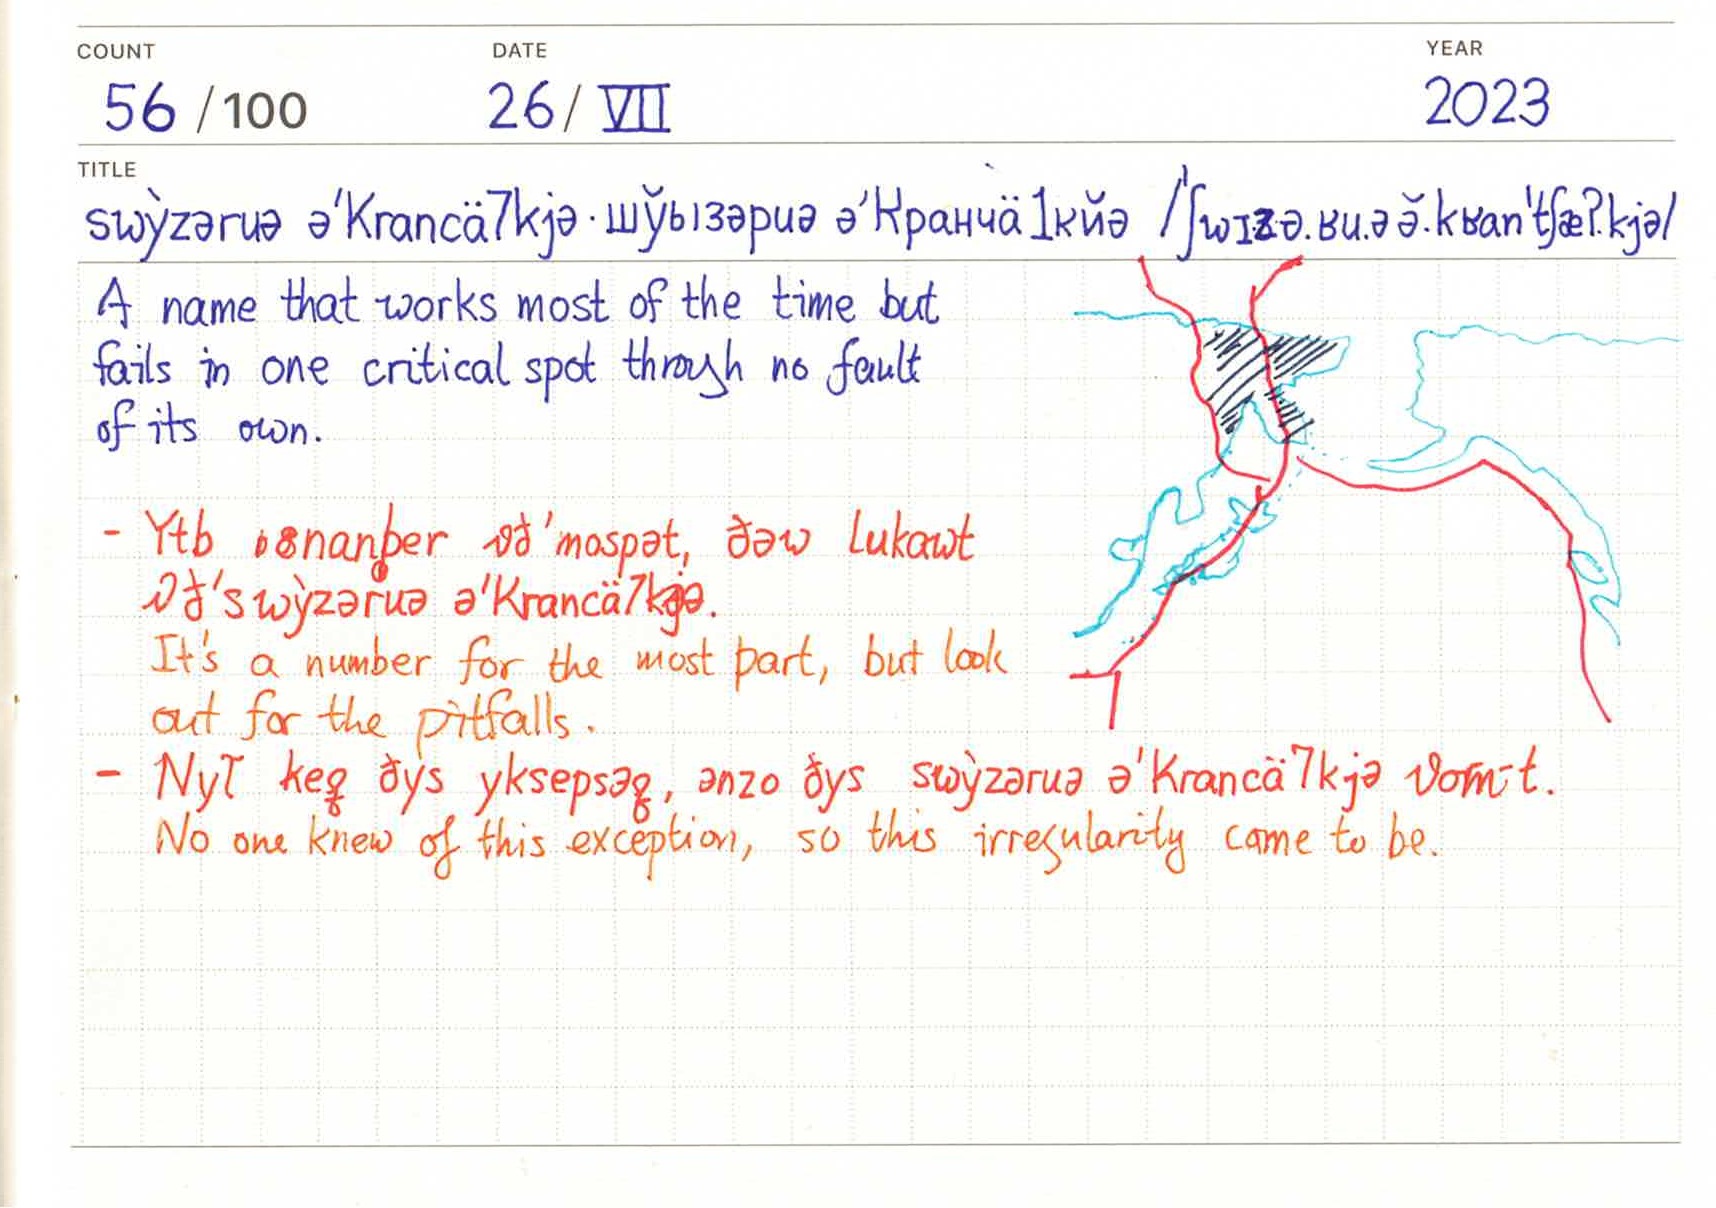 COUNT DATE YEAR
56 /100 26/ VII 2023
TITLE
swỳzəruə ə'Krancä7kjə · шўызəриə ə'Кранчä1кйə /ʃwɪzə.ʁu.ə ə̆.kʁan'tʃæʔ.kjə/
A name that works most of the time but
fails in one critical spot through no fault
of its own.
- Ytb mospət, ðəw lukawt
ə'Krancä7kjə.
It's a number for the most part, but look
out for the pitfalls.
- ðys swỳzəruə ə'Krancä7kjə
No one knew of this exception, so this irregularity came to be.